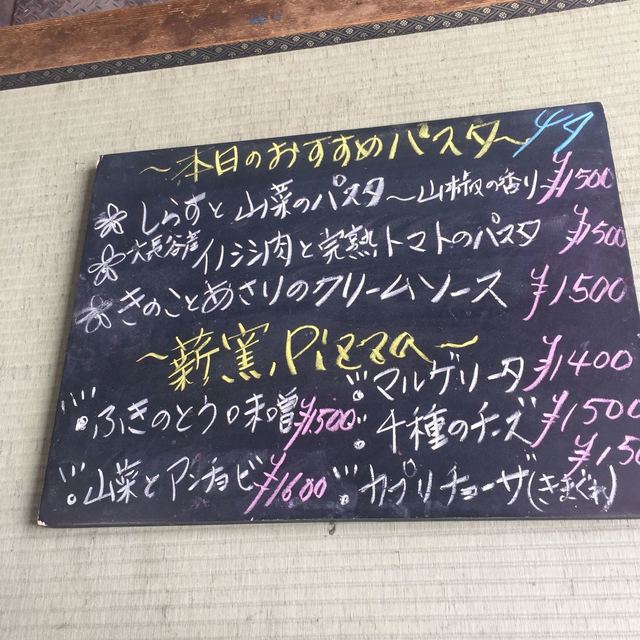 ~本日のおすすめパスタ~ 4/7
しらすと山菜のパスタ~山椒の香り~ ¥1500
大長谷産イノシシ肉と完熟トマトのパスタ ¥1500
きのことあさりのクリームソース ¥1500
~薪窯Pizza~
マルゲリータ ¥1400
ふきのとう味噌 ¥1500
4種のチーズ ¥1500
山菜とアンチョビ ¥1600
カプリチョーザ(きまぐれ) ¥150